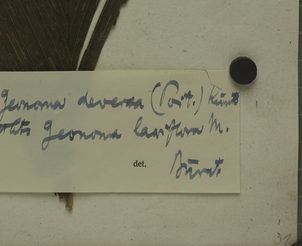 Geonoma deversa (Poit.) Kunth
Geonoma laxiflora M.
det. Burret